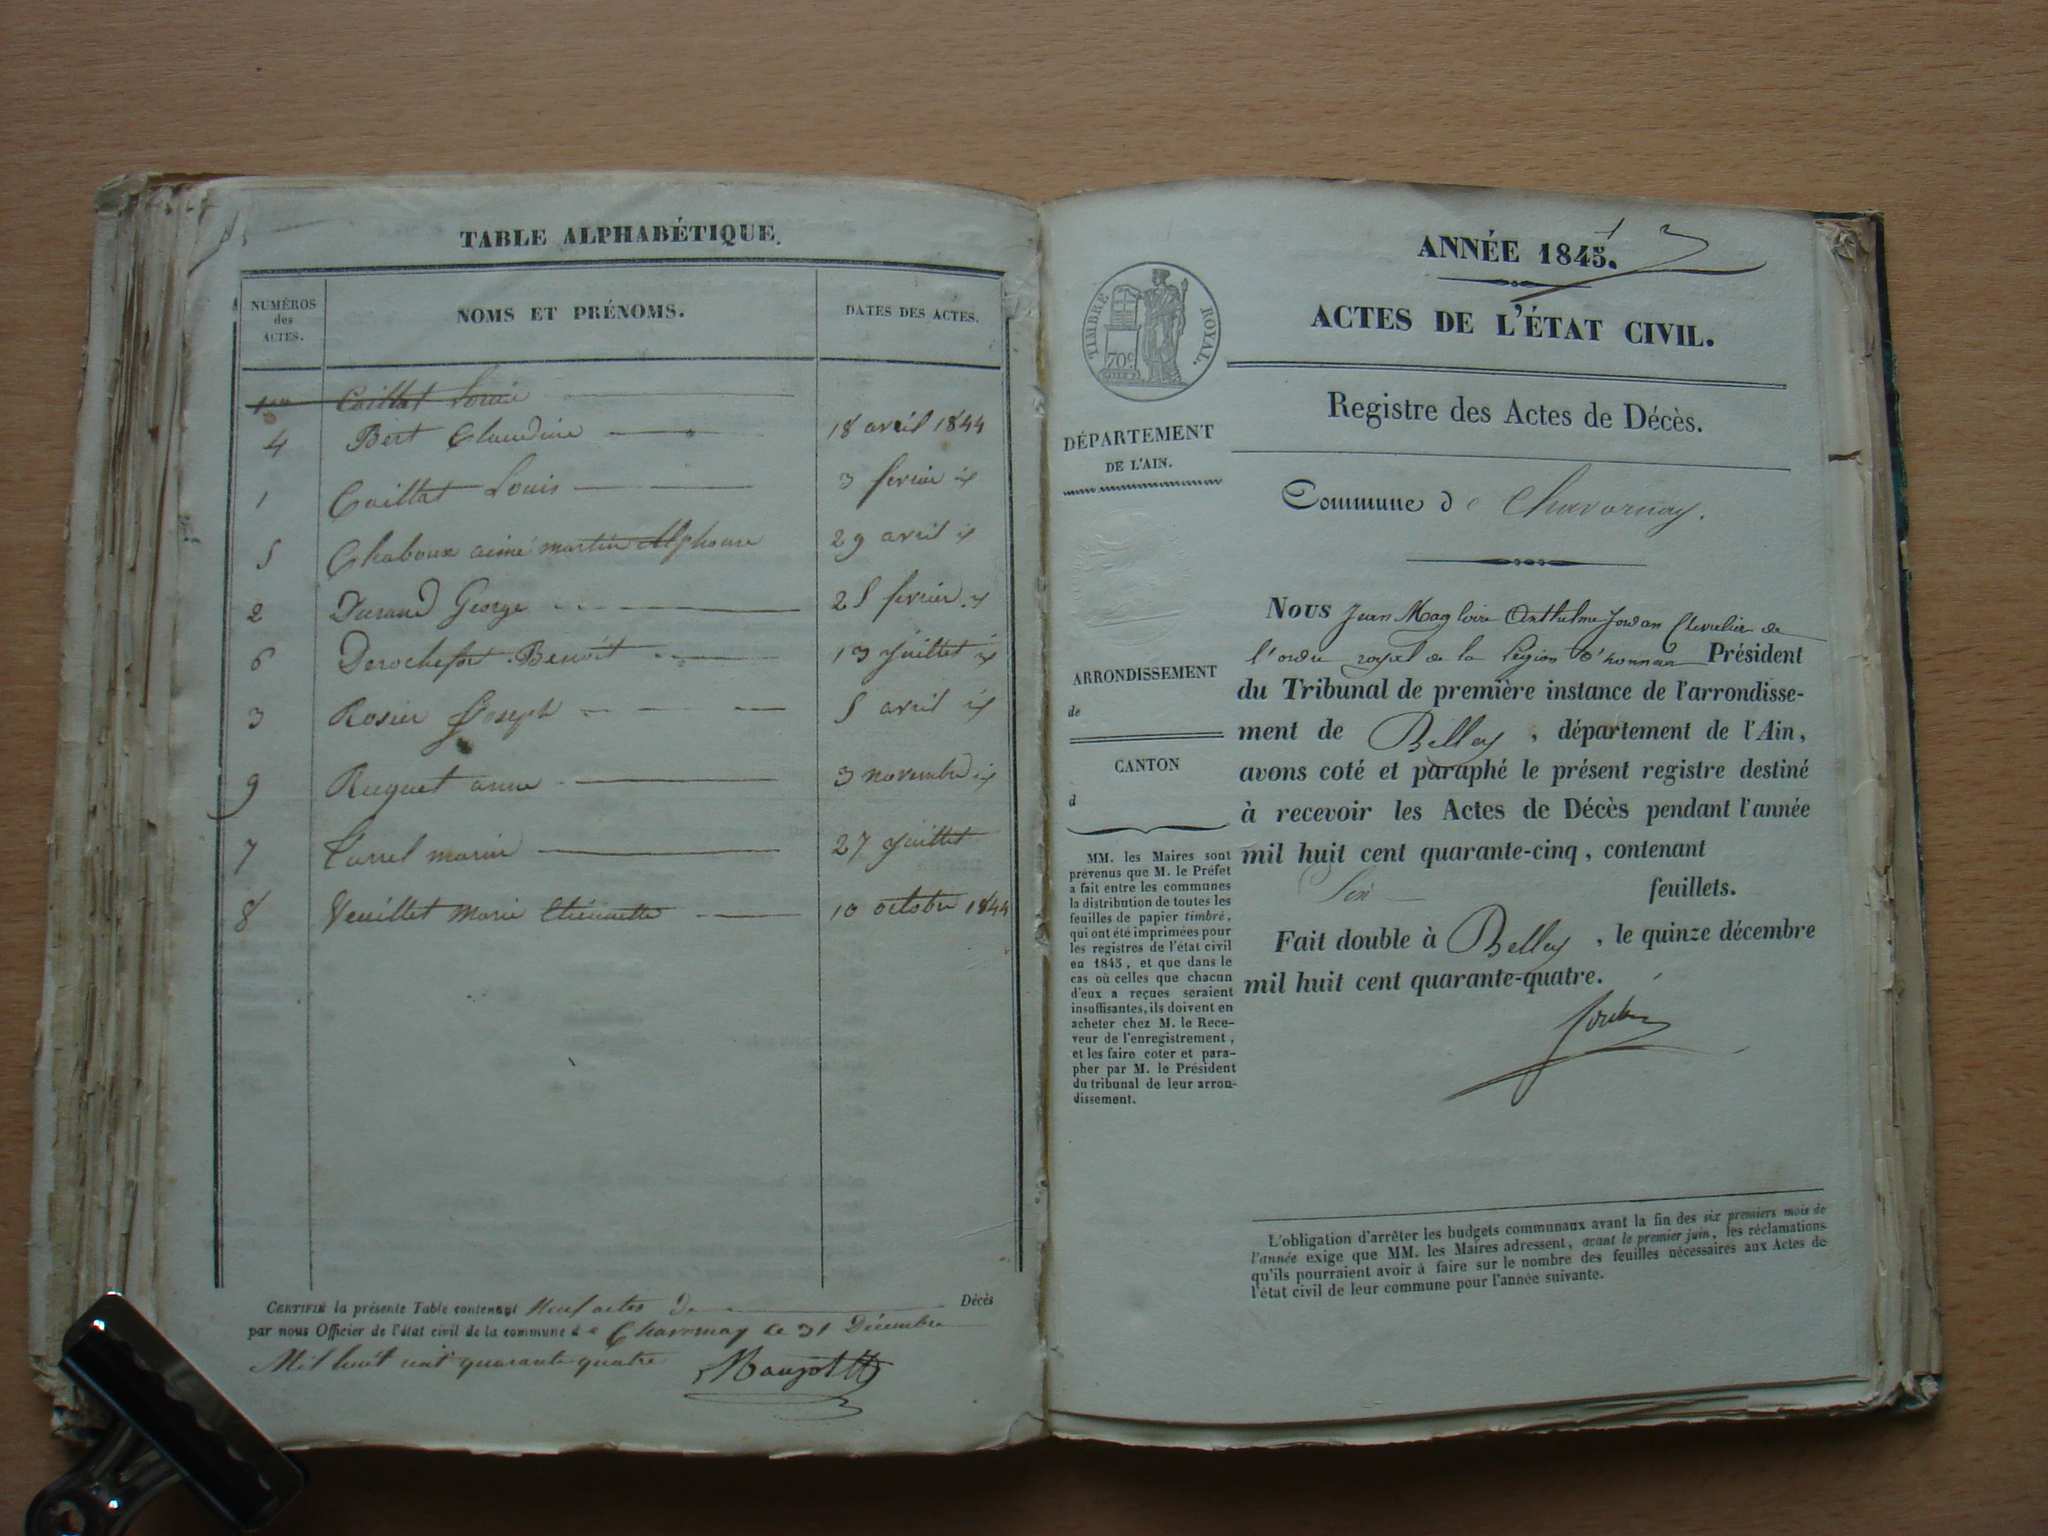 TABLE ALPHABÉTIQUE.
NUMÉROS des ACTES. NOMS ET PRÉNOMS. DATES DES ACTES.
Caillat Louis
4 Bert Claudine 18 avril 1844
1 Caillat Louis 3 fevrier id
5 Chaboux aimé martin Alphonse 29 avril id
2 Durand George 25 fevrier id
6 Derochefort Benoit 13 juillet id
3 Rosier Joseph 5 avril id
9 Ruguet anne 3 novembre id
7 marie 27 juillet
8 Veuillet Marie Etiennette 10 octobre 1844
CERTIFIÉ la présente Table contenant Neuf actes de Décès
par nous Officier de l'état civil de la commune de Chavornay le 31 Décembre
Mil huit cent quarante quatre
ANNÉE 1845.
ACTES DE L'ÉTAT CIVIL.
Registre des Actes de Décès.
Commune de Chavornay.
TIMBRE ROYAL.
70c
DÉPARTEMENT
DE L'AIN.
ARRONDISSEMENT
de
CANTON
d
MM. les Maires sont
prévenus que M. le Préfet
a fait entre les communes
la distribution de toutes les
feuilles de papier timbré,
qui ont été imprimées pour
les registres de l'état civil
en 1845, et que dans le
cas où celles que chacun
d'eux a reçues seraient
insuffisantes, ils doivent en
acheter chez M. le Rece-
veur de l'enregistrement,
et les faire coter et para-
pher par M. le Président
du tribunal de leur arron-
dissement.
Nous Jean Magloire Anthelme Jordan Chevalier de
l'ordre royal de la Légion d'honneur Président
du Tribunal de première instance de l'arrondisse-
ment de Belley, département de l'Ain,
avons coté et paraphé le présent registre destiné
à recevoir les Actes de Décès pendant l'année
mil huit cent quarante-cinq, contenant
Six feuillets.
Fait double à Belley, le quinze décembre
mil huit cent quarante-quatre.
L'obligation d'arrêter les budgets communaux avant la fin des six premiers mois de
l'année exige que MM. les Maires adressent, avant le premier juin, les réclamations
qu'ils pourraient avoir à faire sur le nombre des feuilles nécessaires aux Actes de
l'état civil de leur commune pour l'année suivante.